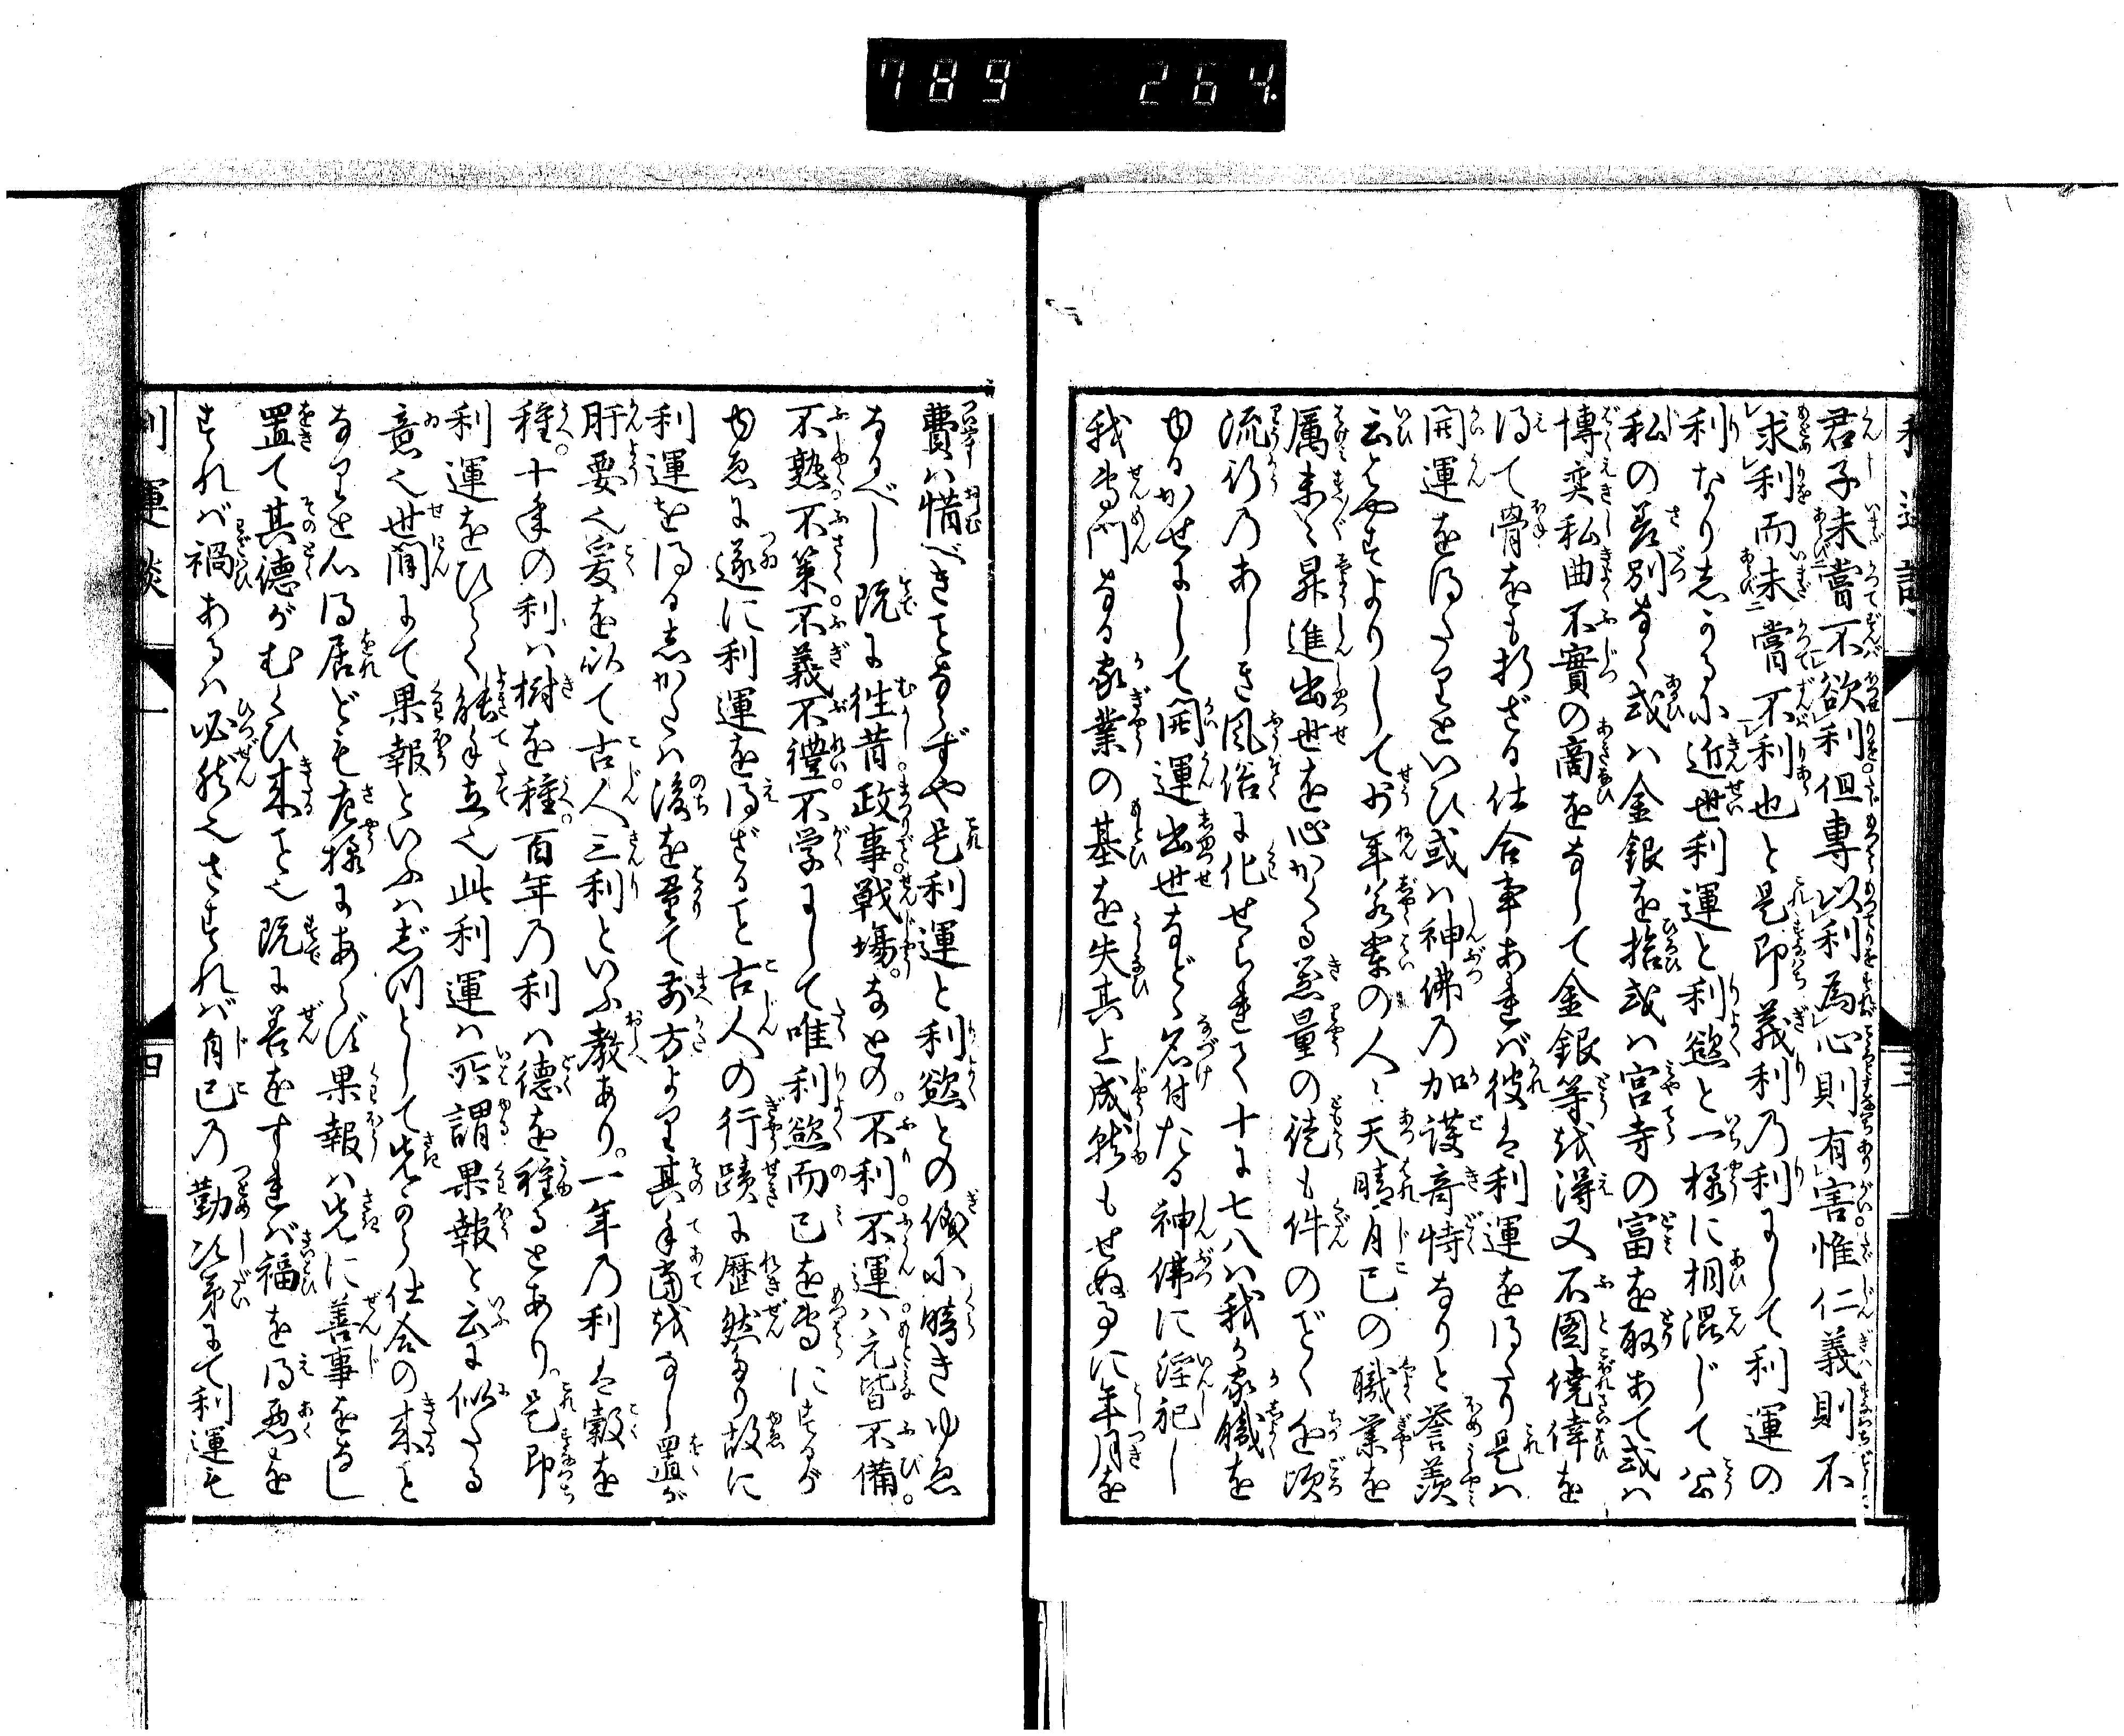 789 264
君子未嘗不欲利但専以利為心則有害惟仁義則不
求利而未嘗不利也と是即義利乃利にして利運の
利なり然るに近世利運と利慾と一様に相混じて公
私の差別なく或ハ金銀を拾或ハ宮寺の富を取あて或ハ
博奕私曲不實の商をなして金銀等越得又不図僥倖を
得て骨をも折ざる仕合事あれバ彼は利運を得たり是ハ
開運を得たりといひ或ハ神佛乃加護竒特なりと誉羨
云はやすよりして少年若輩の人〻天晴自己の職業を
属末〻昇進出世を心かくる器量の徒も件のごとく近頃
流行乃あしき風俗に化せられて十に七八ハ我家職を
ゆるかせにして開運出世など名付たる神佛に淫祀し
我専門なる家業の基を失其上成就もせぬ事に年月を
費ハ惜べきことならずや是利運と利慾との儀に暗きゆゑ
なるべし既に往昔政事戦場なとの不利不運ハ元皆不備
不熟不策不義不禮不学にして唯利慾而已を専にするが
ゆゑに遂に利運を得ざること古人の行蹟に歴然たり故に
利運を得る志かたハ後を量て前方より其手當越なし置が
肝要也爰を以て古人三利といふ教あり一年乃利は穀を
種十年の利ハ樹を種百年乃利ハ徳を種るとあり是即
利運をひらく能手立也此利運ハ所謂果報と云に似たる
意也世間にて果報といふハ志つとして先より仕合の来と
なりと心得居ども左様にあらず果報ハ先に善事をなし
置て其徳がむくひ来こと也既に善をすれバ福を得悪を
すれバ禍あるハ必然也さすれバ自己乃勤次第にて利運も
利運談 一 四